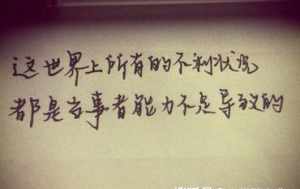 这世界上所有的不利状况
都是当事者能力不足导致的